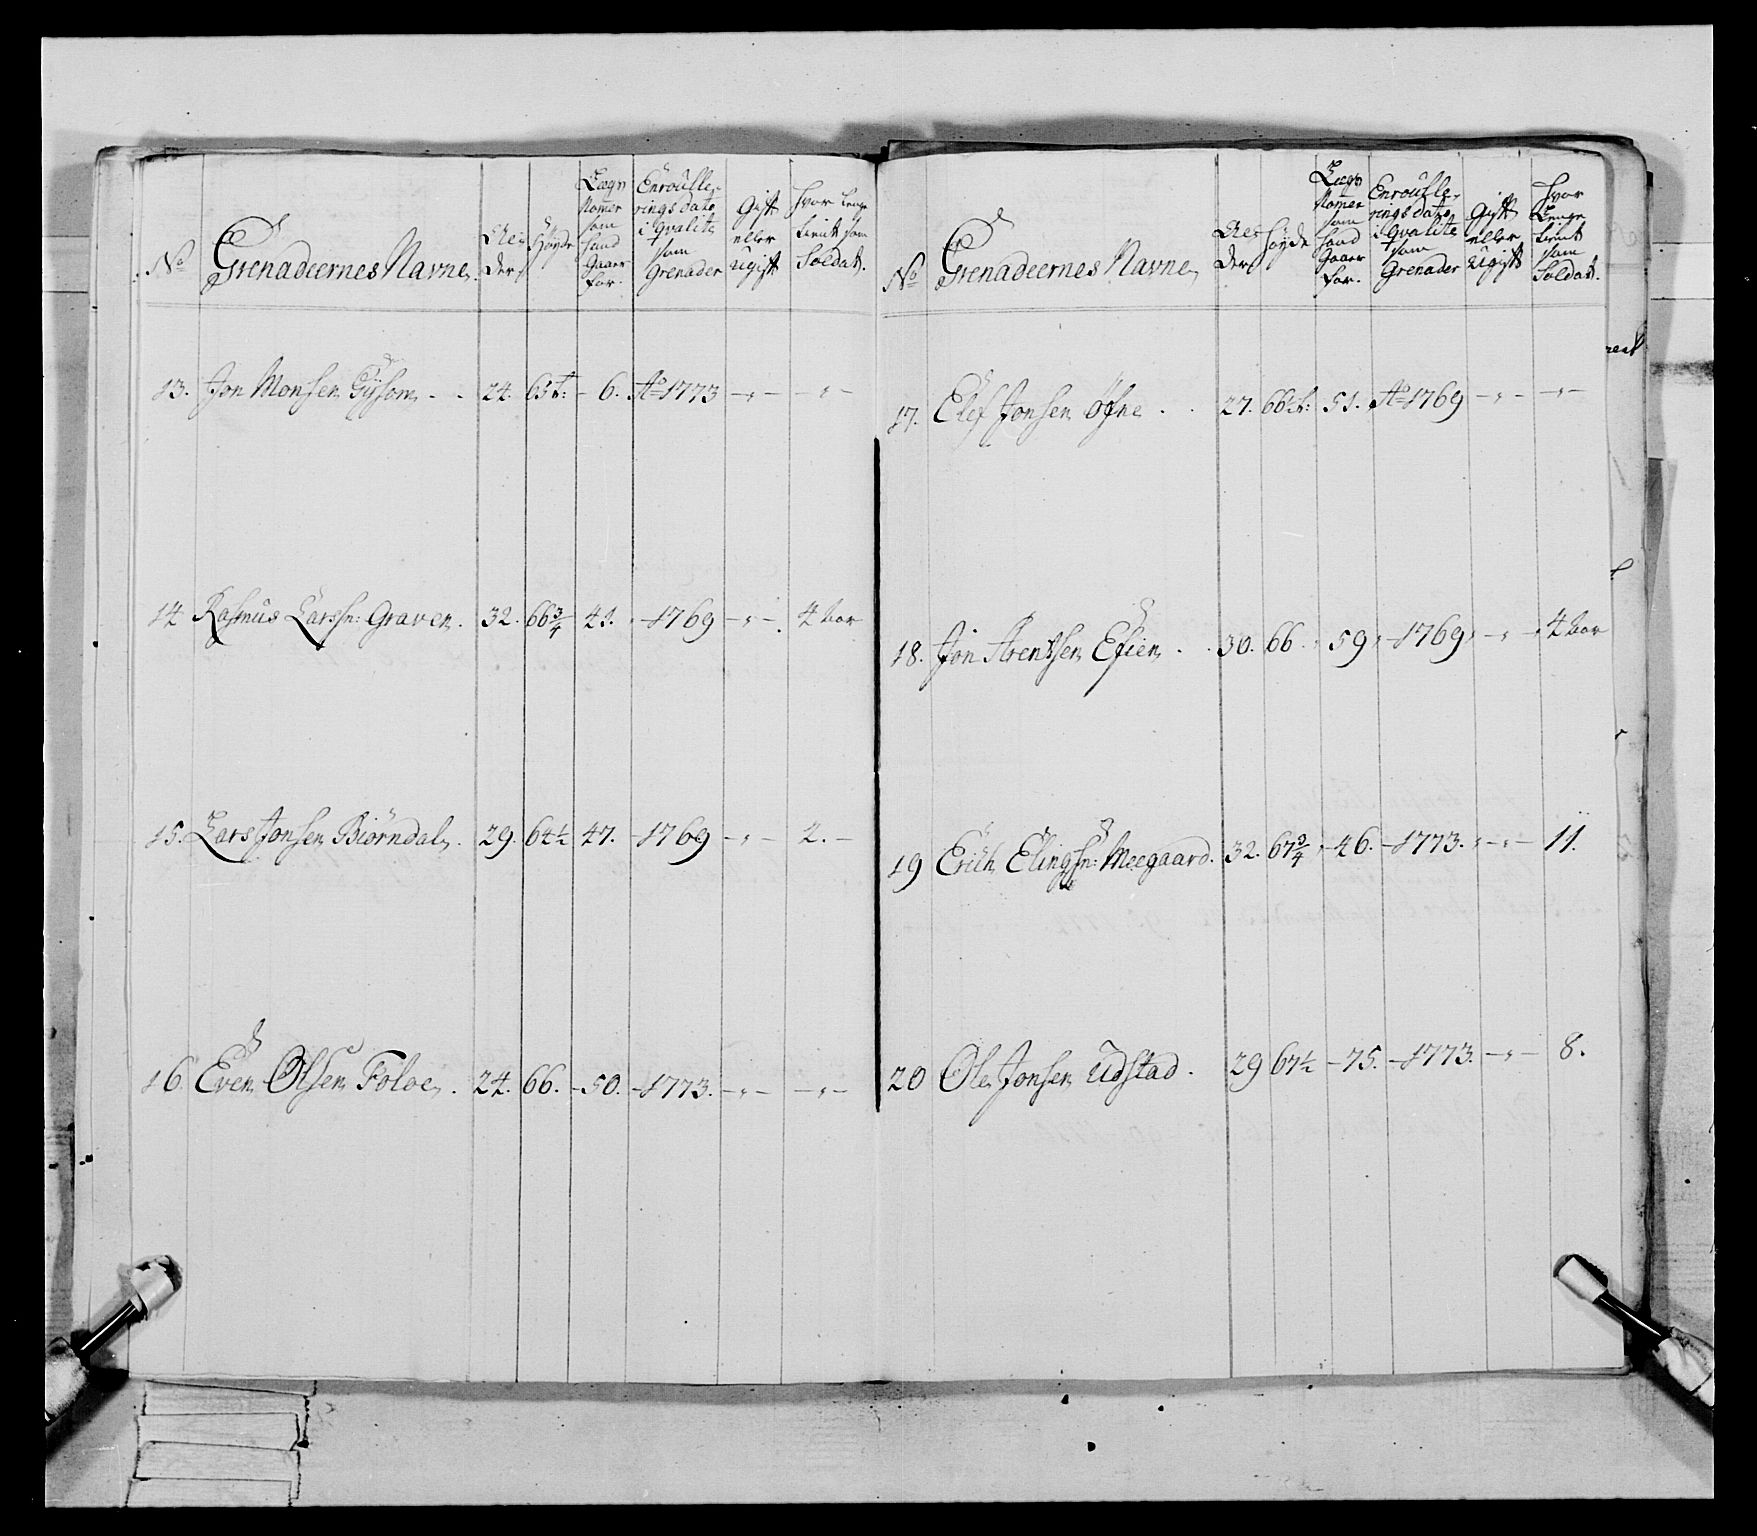 No
Grenadeernes Navne
Al:
der
Höyde
Lægs
Nomer
som
hand
Gaaer
for.
Enroulle-
rings dato
i Qvalite
som
Grenader
Gift
eller
Ugift
Hvor Lenge
tient som
Soldat.
13. Jon Monsen . . 24. 65 t: - 6. Ao 1773 - " - - " -
14 Rasmus Larssn: Graven. 32. 66 3/4 41. - 1769 - " - 4 aar
15. Lars Jonsen Biörndal. 29. 64 1/2 47. - 1769 - " - 2. -
16. Even Olsen Foloe. 24. 66. - 50. - 1773. - " - - " -
No
Grenadeernes Navne
Al:
der
Höyde
Lægs
Nomer
som
hand
Gaaer
for.
Enroulle-
rings dato
i Qvalite
som
Grenader
Gift
eller
Ugift
Hvor
Lenge
tient
som
Soldat.
17. Elef Jonsen Öfne . . 27. 66 t: 51. Ao 1769 - " - - " -
18. Jon Arentsen Efien . . 30. 66. " 59 " - 1769 " - " - " 4 aar
19 Erich Elingsn: Meegaard. 32. 67 3/4 " - 46. - 1773. " - " - 11.
20 Ole Jonsen Udstad. 29 67 1/2 - 75. - 1773. - " - 8.